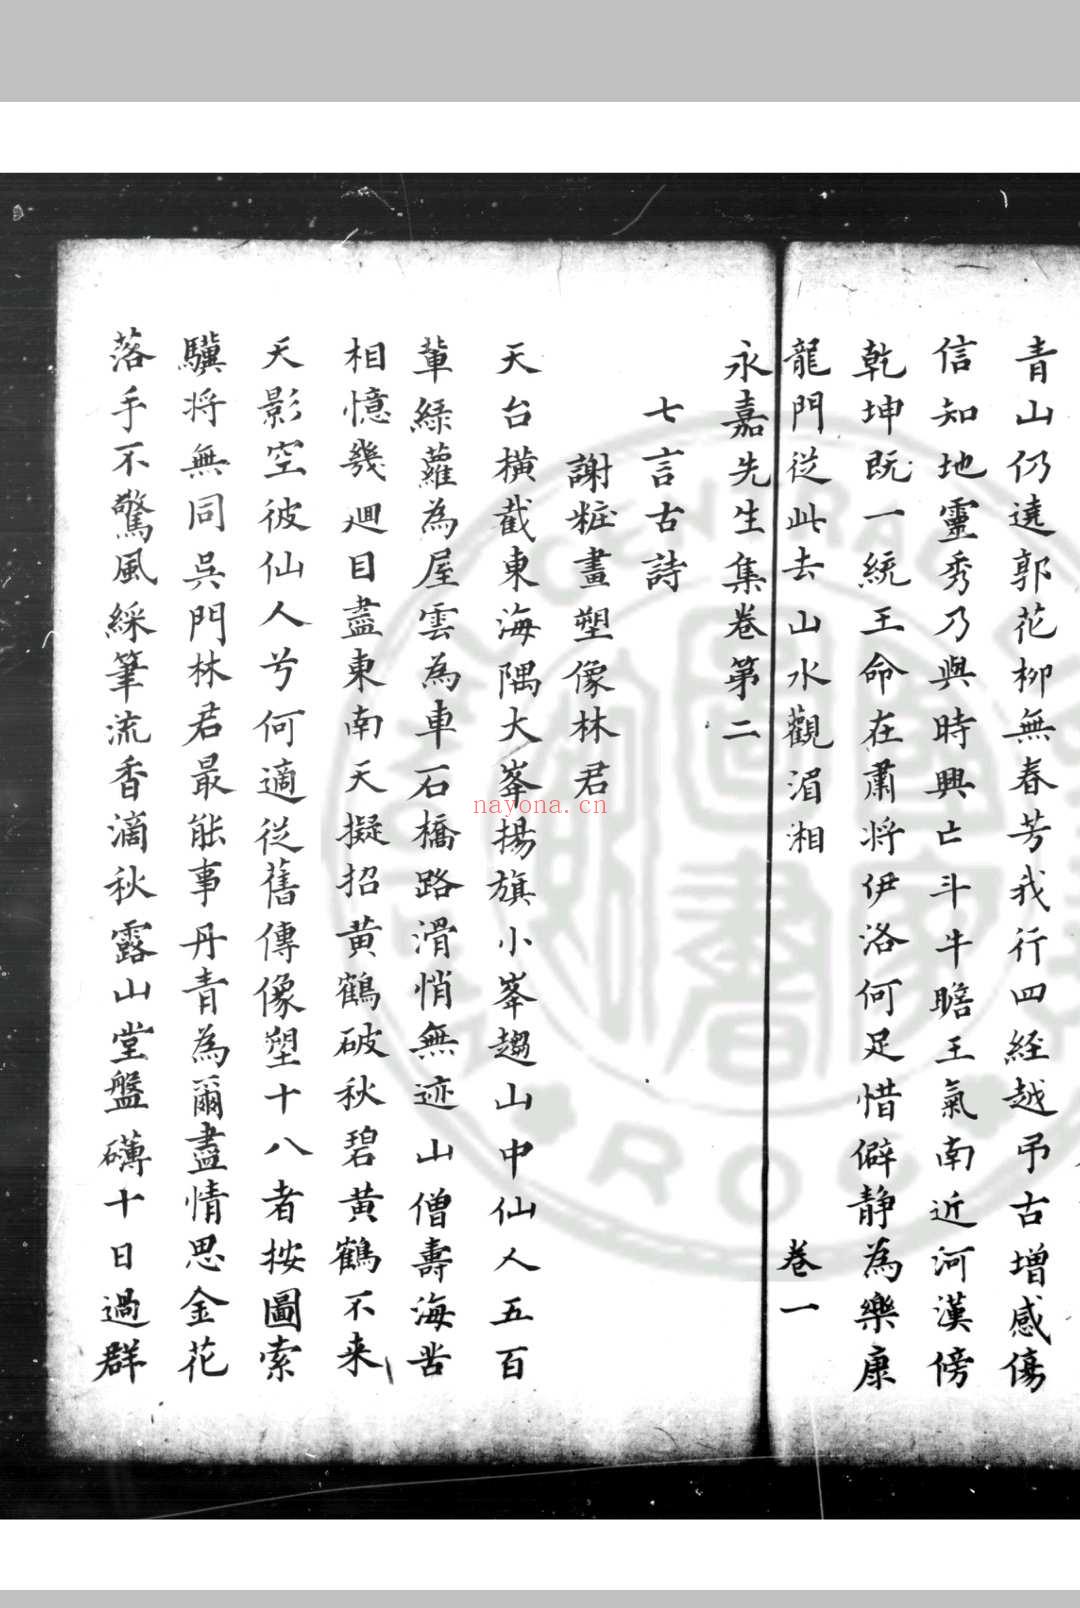 青山仍遶郭花柳無春芳我行四経越弔古増感傷
信知地靈秀乃與時興亡斗牛瞻王氣南近河漢傍
乾坤既一統王命在肅将伊洛何足惜僻静為樂康
龍門従此去山水觀湄湘 卷一
永嘉先生集卷第二
七言古詩
謝粧畫塑像林君
天台横截東海隅大峯揚旗小峯趨山中仙人五百
輩緑蘿為屋雲為車石橋路滑悄無迹山僧壽海苦
相憶幾迴目盡東南天擬招黄鶴破秋碧黄鶴不来
天影空彼仙人兮何適従舊傳像塑十八者按圖索
驥将無同吳門林君最能事丹青為爾盡情思金花
落手不驚風綵筆流香滴秋露山堂盤礴十日過群
nayona.cn
CENTRAL